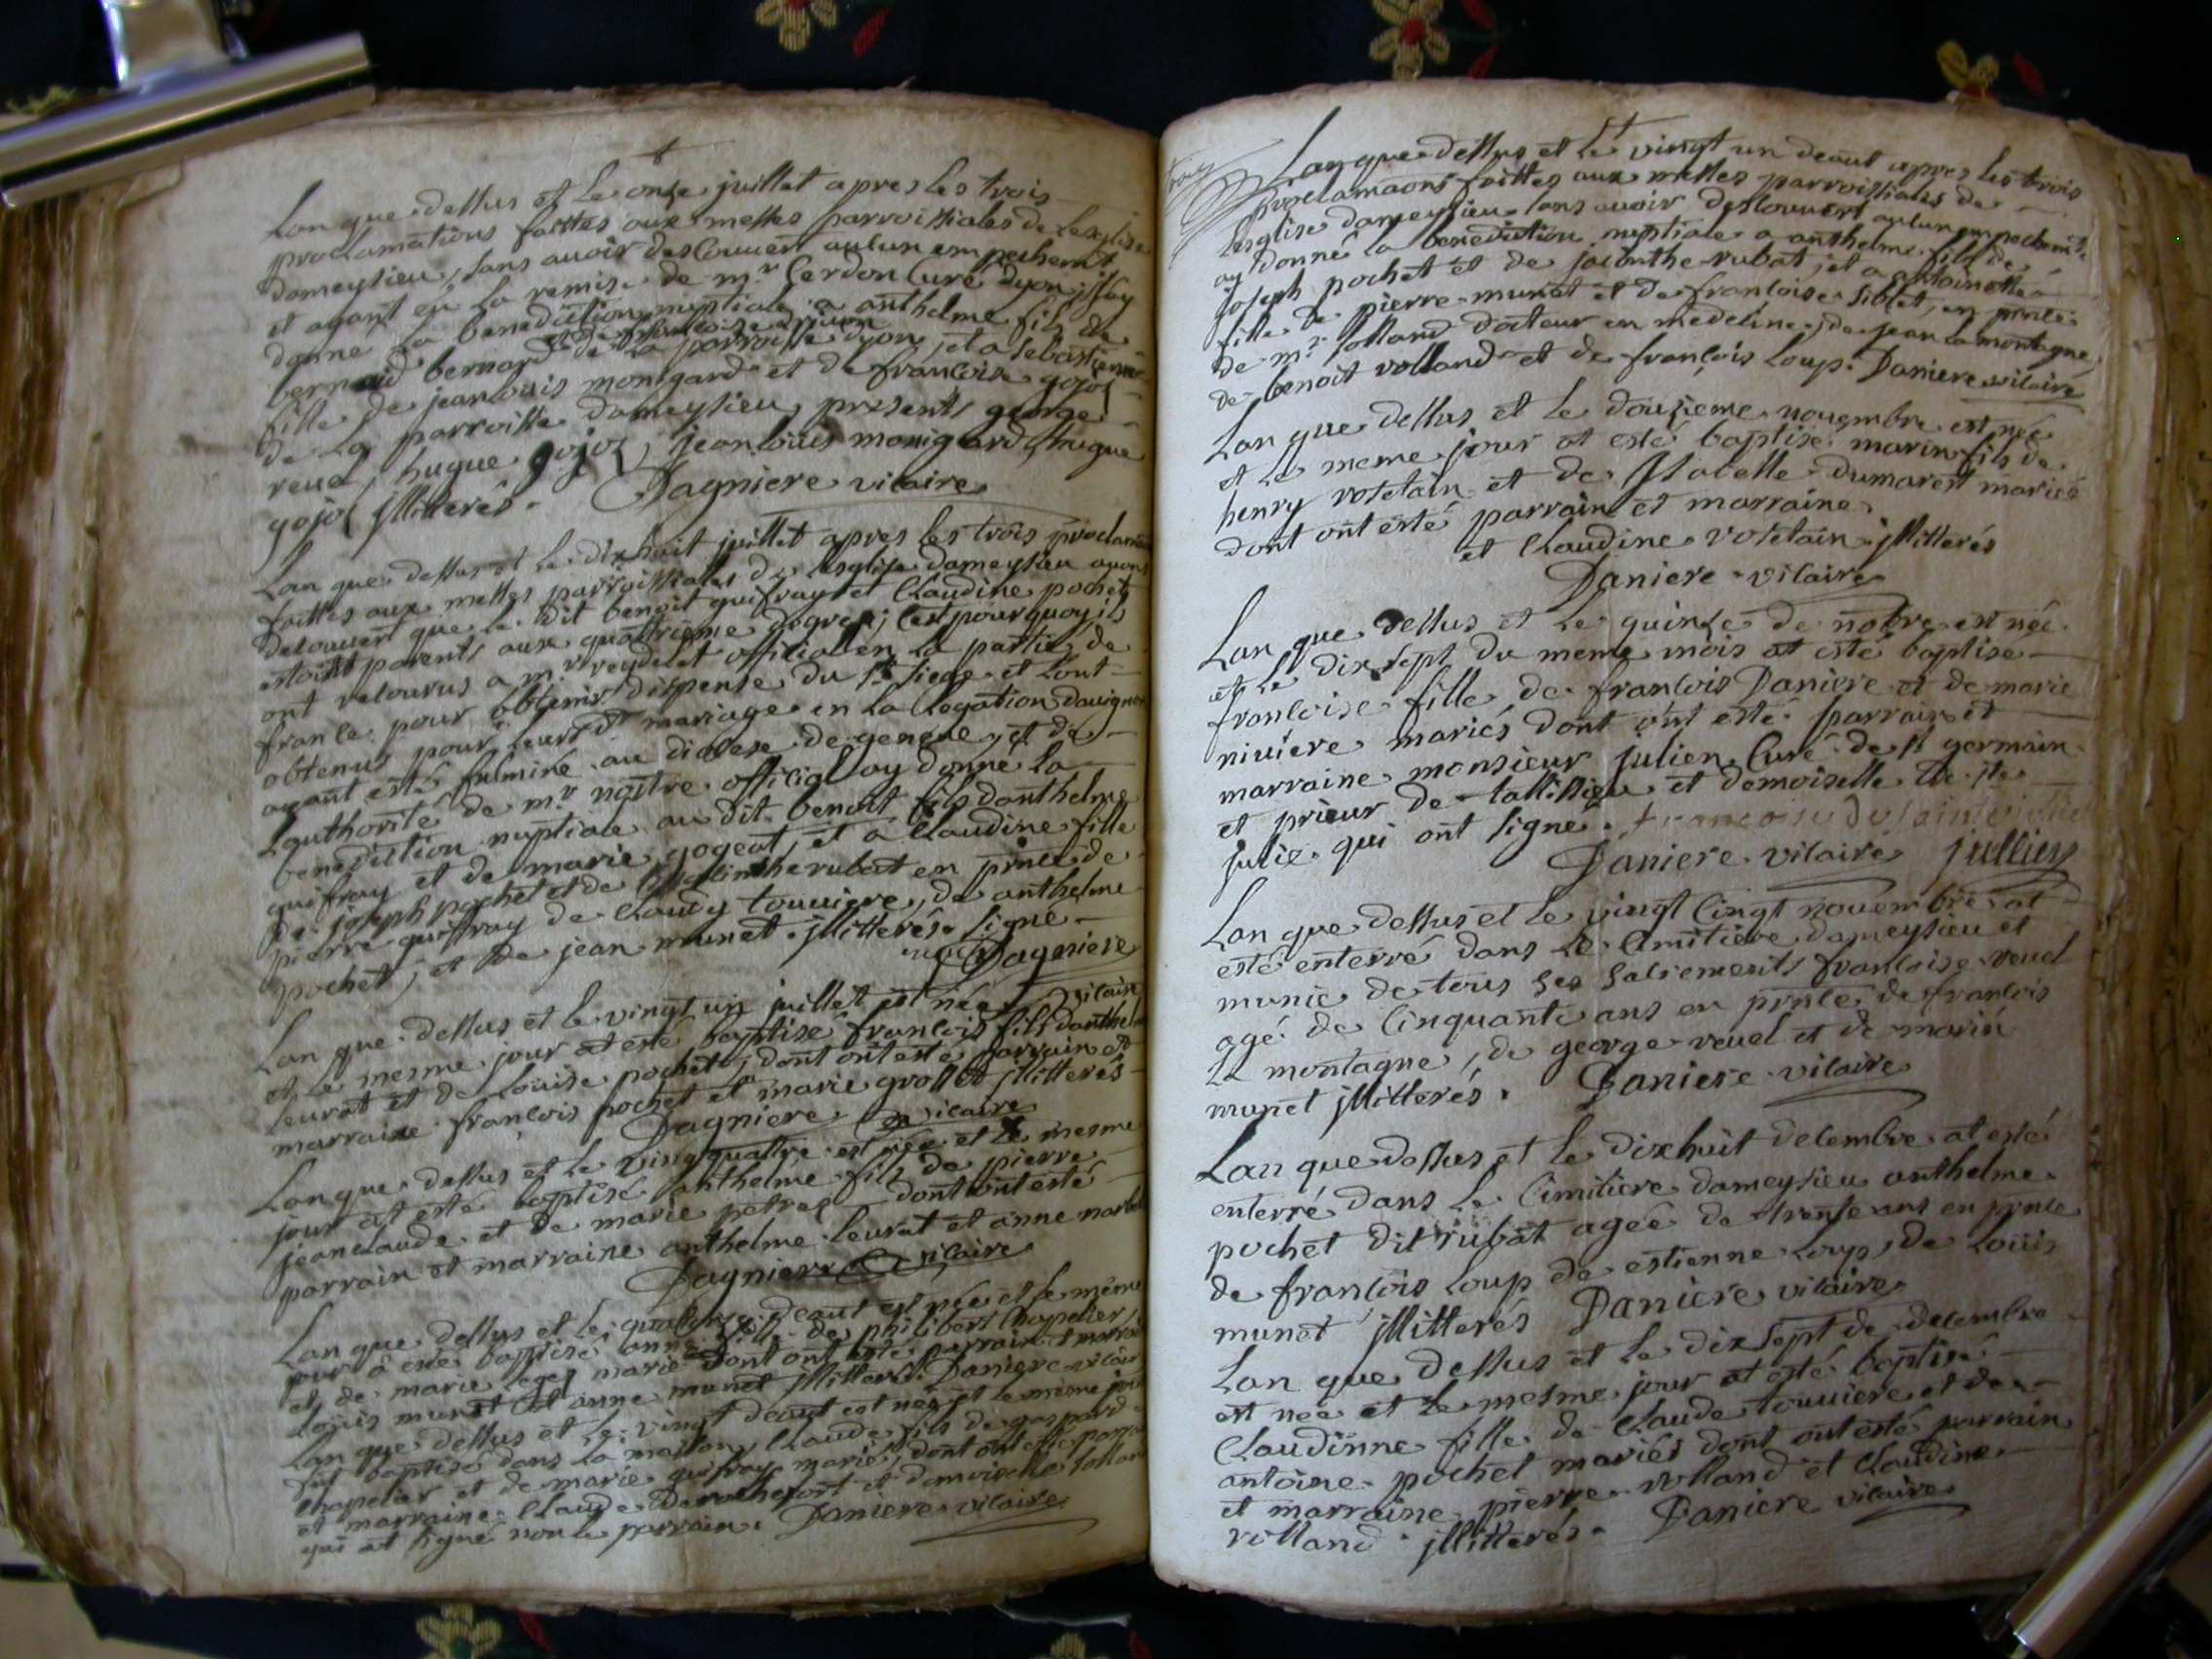 Lan que dessus et le onze juillet apres les trois
proclamations faittes aux messes parroissiales de Lesglise
dameysieu, sans avoir descouvert aucun empechemt
et ayant eu la remise de mr Cerdon Curé dyon, jay
donne la benediction nuptiale a anthelme fils de
bernard bernard et de francoise
de la parroisse dyon, et a sebastienne
fille de jeanlouis monigard et de francoise gojoz
de la parroisse dameysieu, presents george
revel, hugue gojoz, jeanlouis monigard, hugue
gojoz jllitterés. Dagniere vicaire
Lan que dessus et le dixhuit juillet apres les trois proclama
faittes aux messes parroissiales de Lesglise dameysieu avons
decouvert que le dit benoit guifray et Claudine pochet
estoint parents aux quattrieme degrez, cest pourquoy ils
ont recourus a mr reydelet official en la partie de
france pour obtenir dispense du st siege et lont
obtenus pour leurd mariage en la Legation davignon
ayant esté fulminé au diocese de geneve, et de
Lauthorité de mr nostre official ay donne la
benediction nuptiale au dit benoit fils danthelme
guifray et de marie gogeat, et a Claudine fille
de joseph pochet et de jacinthe rubat en pnce de
pierre guiffray de Claudy touviere, de anthelme
pochet, et de jean munet jllitterés. signé
Dagniere
vicaire
Lan que dessus et le vingt un juillet est née
et le mesme jour at esté baptisé francois fils danthel
leurat et de Louise pochet, dont ont esté parrain et
marraine francois pochet et marie grosset jllitterés
Dagniere vicaire
Lan que dessus et le vingquattre est née et le mesme
jour at esté baptisé anthelme fils de pierre
jeanclaude et de marie petrel dont ont esté
parrain et marraine anthelme leurat et anne
Dagniere vicaire
Lan que dessus et le quatorze daout est née et le même
jour a esté baptisé anne fille de philibert Chapelier
et de marie leger marié dont ont esté parrain et marrai
Loüis munet et anne munet jllitterés. Daniere vicaire
Lan que dessus et le vingt daout est née et le même jour
fut baptisé dans la maison Claude fils de gaspard
Chapelier et de marie guifray mariés, dont ont esté parra
et marraine Claude Derochefort et demoiselle
qui at signé non le parrain. Daniere vicaire
Lan que dessus et le vingt un daout apres les trois
proclamaons faittes aux messes parroissiales de
Lesglise dameysieu sans avoir descouvert aulcun empechemt
ay donné la benediction nuptiale a anthelme fils de
Joseph pochet et de jacinthe rubat, et a antoinette
fille de pierre munet et de francoise siblet, en pnce
de mr Jolland docteur en medecine, de jean lamontagne,
de benoit volland et de françois Loup. Daniere vicaire
Lan que dessus et le douzieme novembre est née
et le meme jour at esté baptisé marin fils de
henry vosetain et de Isabelle dumarest mariés
dont ont esté parrain et marraine
et Claudine vosetain jllitterés
Daniere vicaire
Lan que dessus et le quinze de nobre est née
et le dix sept du meme mois at esté baptise
francoise fille de francois Daniere et de marie
niviere mariés dont ont esté parrain et
marraine monsieur julien Curé de st germain
et prieur de tallissieu et demoiselle de ste
julie qui ont signé.
Daniere vicaire Jullien
Lan que dessus et le vingt Cinqt novembre at
esté enterré dans le Cimitiere dameysieu et
munie de tous ses sacrements francoise revel
agé de Cinquante ans en pnce de francois
La montagne, de george revel et de marin
munet jllitterés. Daniere vicaire
Lan que dessus et le dixhuit decembre at esté
enterré dans le Cimitiere dameysieu anthelme
pochet dit rubat ageé de trente ans en pnce
de francois Loup de estienne Loup, de Loüis
munet jllitterés Daniere vicaire
Lan que dessus et le dix sept de decembre
est neé et le mesme jour at esté baptisé
Claudinne fille de Claude touviere et de
antoine pochet mariés dont ont esté parrain
et marraine pierre volland et Claudine
volland jllitterés. Daniere vicaire